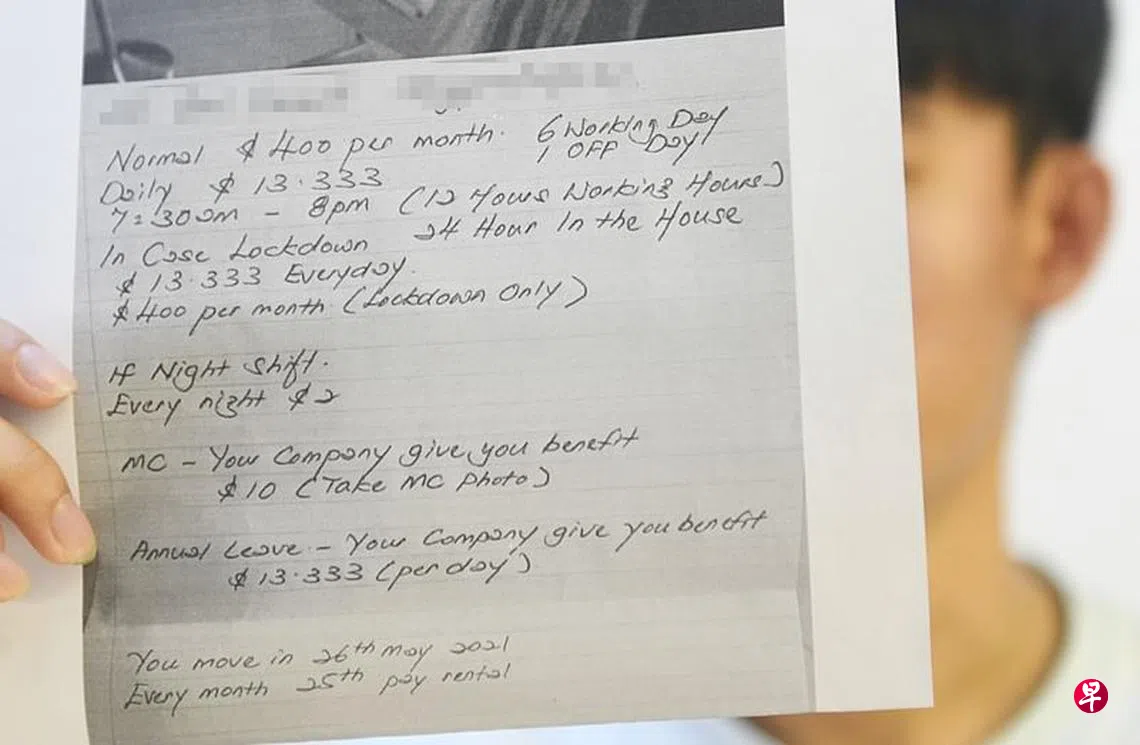 Normal $400 per month. 6 Working Day
1 OFF Day
Daily $13.333
7:30am - 8pm (12 Hours Working Hours)
In Case Lockdown 24 Hour In the House
$13.333 Everyday.
$400 per month (Lockdown Only)
If Night Shift.
Every night $2
MC - Your Company give you benefit
$10 (Take MC Photo)
Annual Leave - Your Company give you benefit
$13.333 (per day)
You move in 26th may 2021
Every month 25th pay rental
早